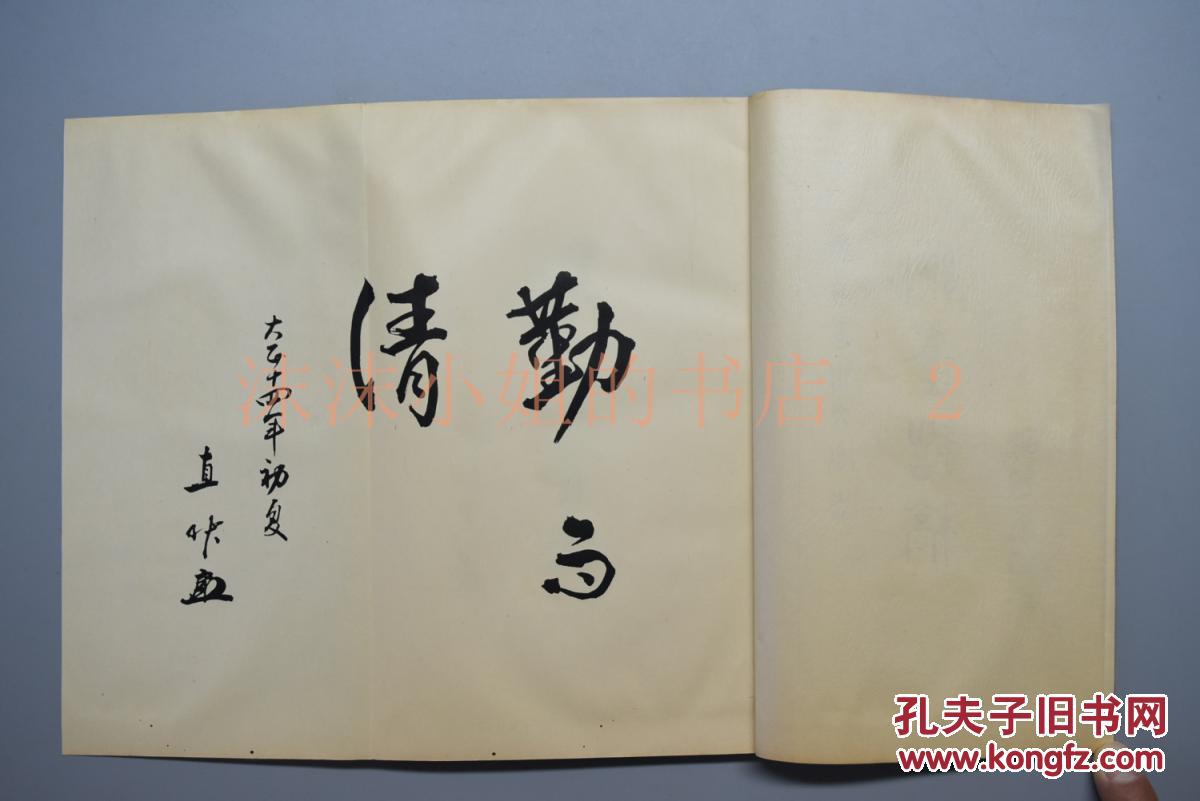 勤而
清
大正十四年初夏
直
沫沫小姐的书店 2
孔夫子旧书网
www.kongfz.com